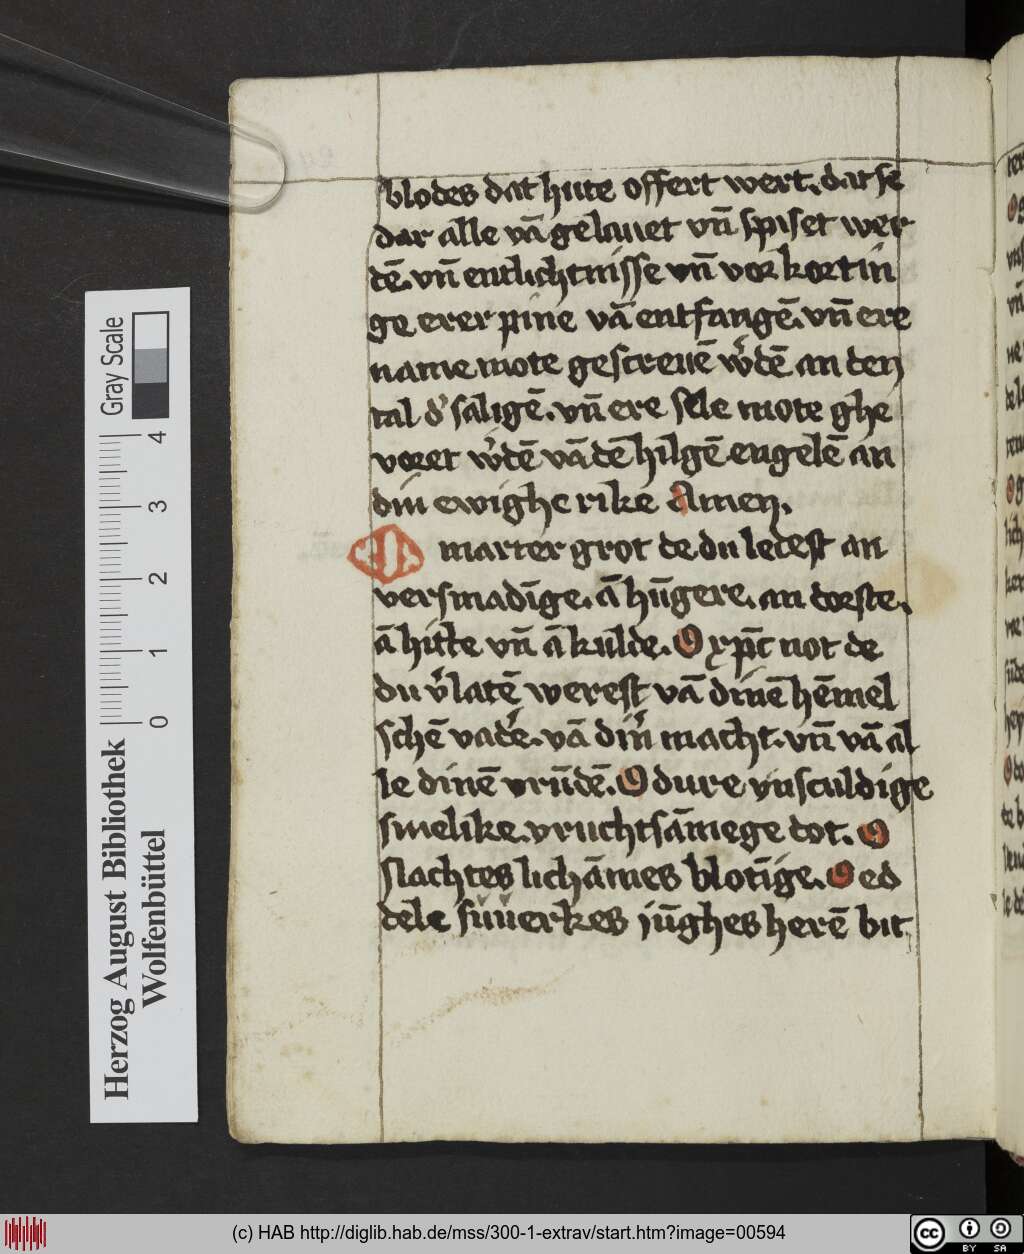 blodes dat hute offert wert. dat se
dar alle vā gelauet vn̄ spiset wer
dē. vn̄ entlichtnisse vn̄ vor kortin
ge erer pine vā entfangē. vn̄ ere
name mote gescreuē w'dē an den
tal d' saligē. vn̄ ere sele mote ghe
voret w'dē vā dē hilgē engelē an
din ewighe rike Amen.
O marter grot de du ledest an
versmadīge. ā hūgere. an dorste.
ā hitte vn̄ ā kulde. O xp̄c not de
du v'latē werest vā dinē hēmel
schē vad'e. vā din' macht. vn̄ vā al
le dinē vrūdē. O dure vnsculdige
smelike. vruchtsāmege dot. O
slachtes lichāmes blotīge. O ed
dele suuerkes jūghes herē bit
Gray Scale
4
3
2
1
0
Herzog August Bibliothek
Wolfenbüttel
(c) HAB http://diglib.hab.de/mss/300-1-extrav/start.htm?image=00594
cc BY SA